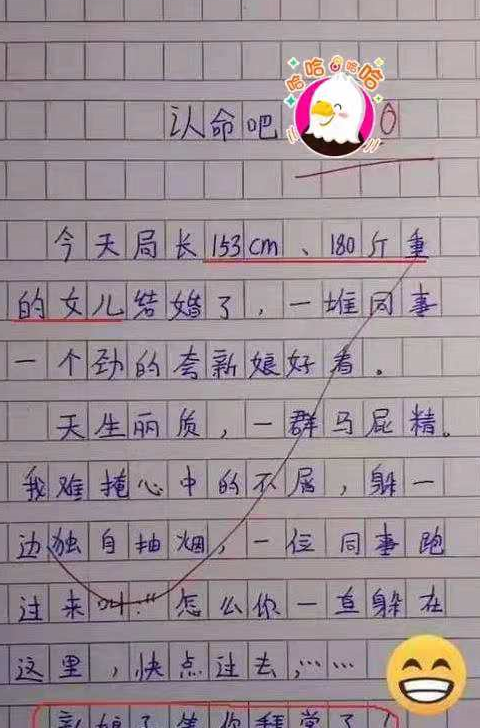 哈哈哈哈
认命吧 0
今天局长153cm、180斤重
的女儿结婚了，一堆同事
一个劲的夸新娘好看。
天生丽质，一群马屁精。
我难掩心中的不屑，躲一
边独自抽烟，一位同事跑
过来叫："怎么你一直躲在
这里，快点过去，……
新娘子等你拜堂了！